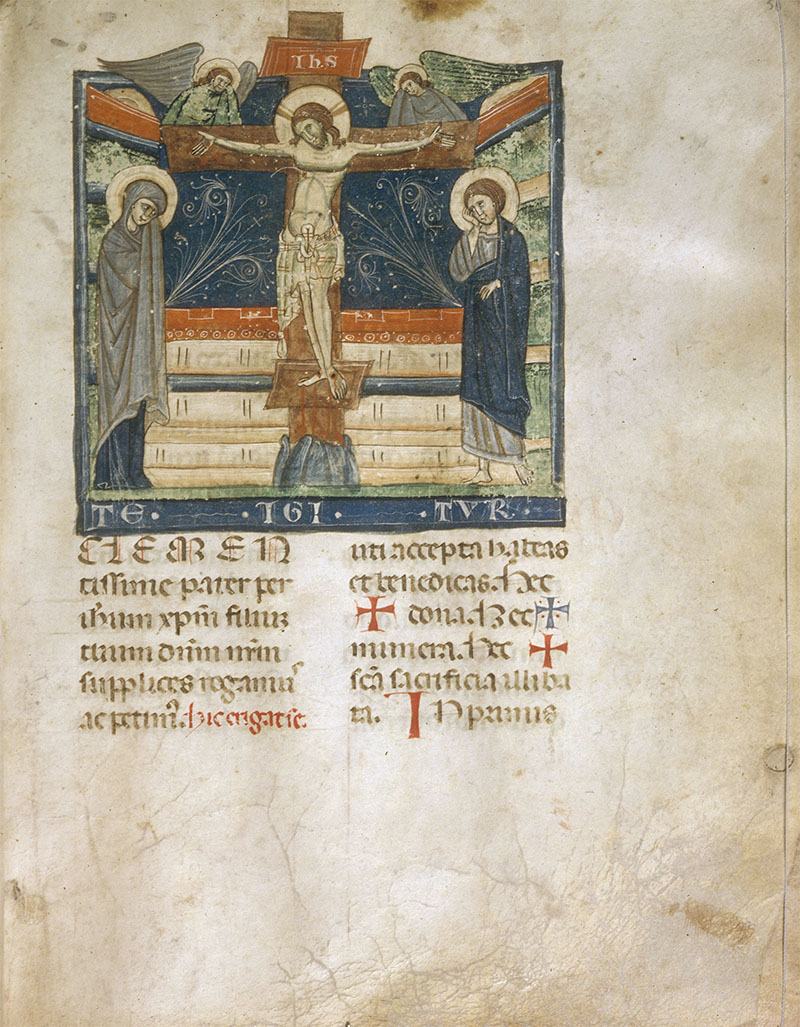 IhS
TE · IGI · TUR ·
CLEMEN
tissime pater per
ihum xpm filium
tuum dnm nrm
supplices rogamus
ac petim9. hic erigat se.
uti accepta habeas
et benedicas. hec
✠ dona. hec ✠
munera. hec ✠
sca sacrificia illiba
ta. In primis